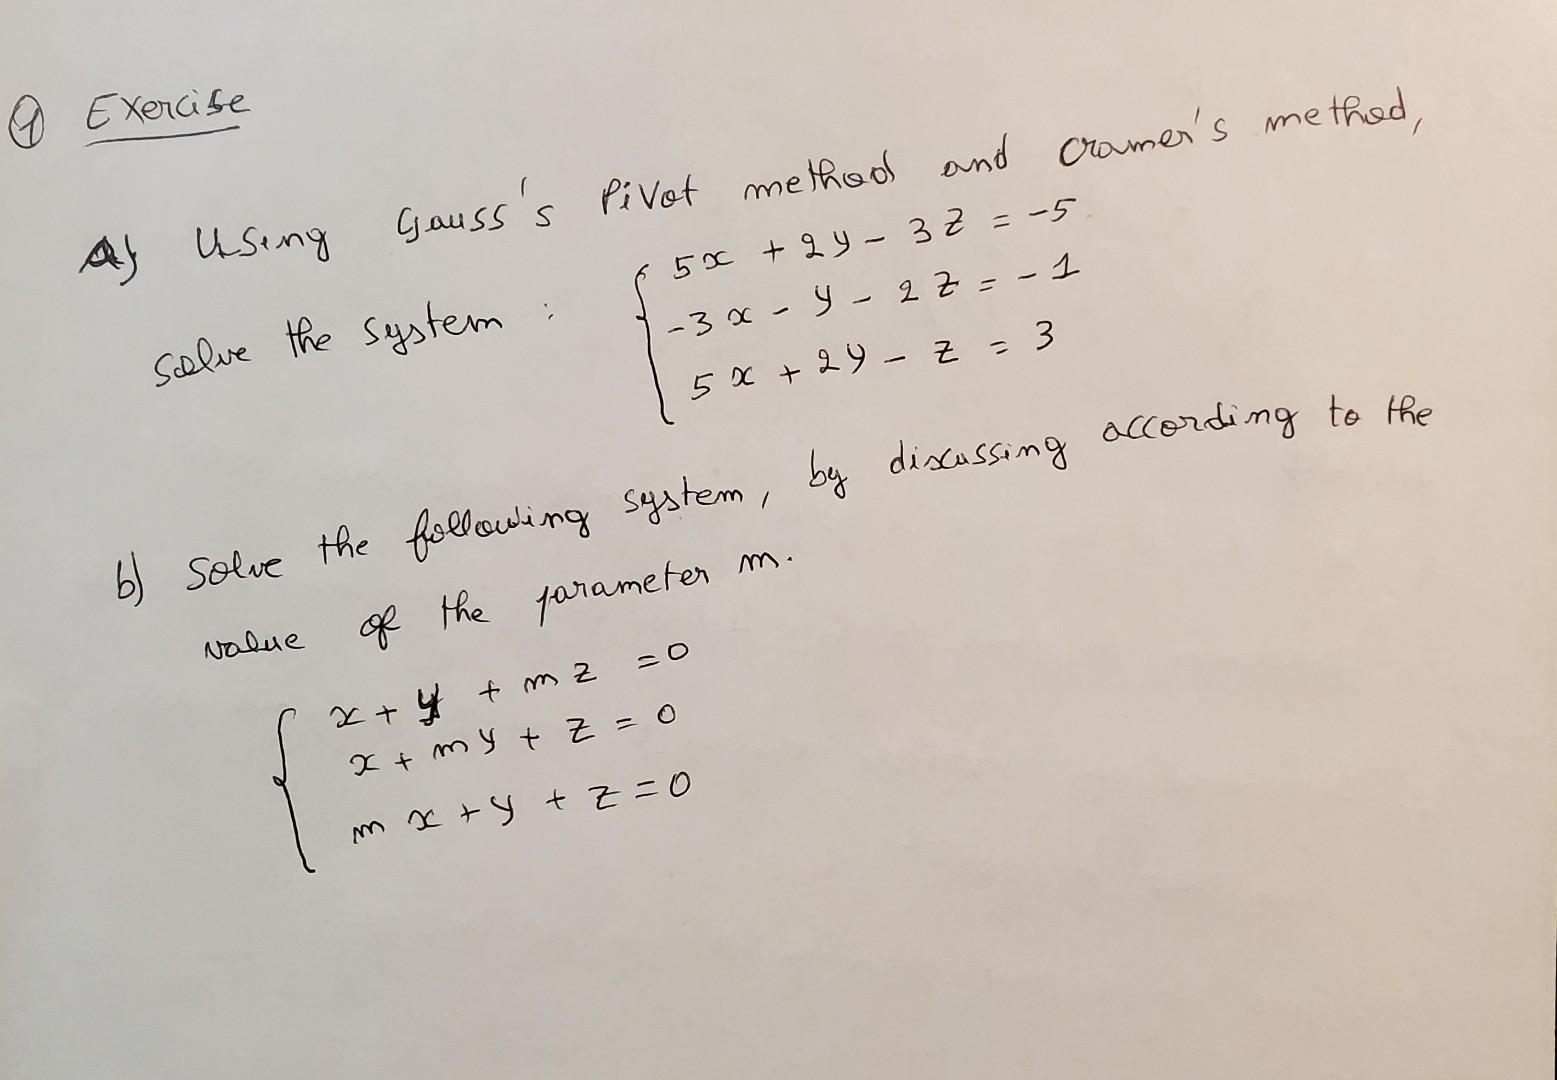 ① Exercise
a) Using Gauss's Pivot method and cramer's method,
solve the system : { 5x + 2y - 3z = -5
-3x - y - 2z = -1
5x + 2y - z = 3
b) Solve the following system, by discussing according to the
value of the parameter m.
{ x + y + mz = 0
x + my + z = 0
mx + y + z = 0